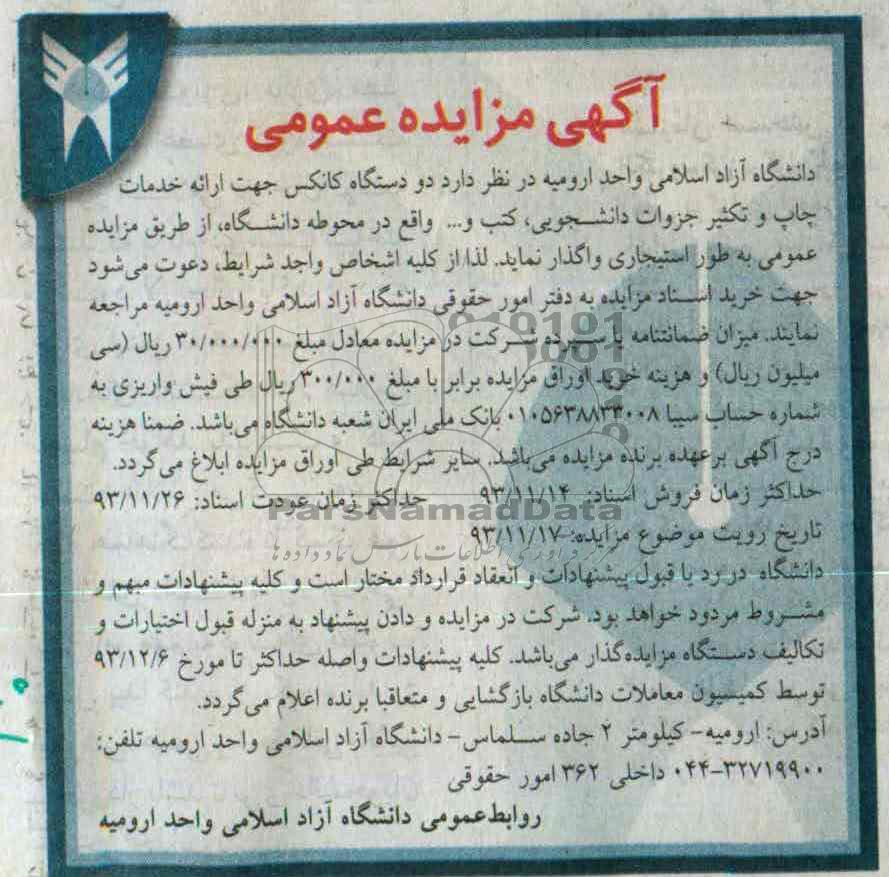 آگهی مزایده عمومی
دانشگاه آزاد اسلامی واحد ارومیه در نظر دارد دو دستگاه کانکس جهت ارائه خدمات
چاپ و تکثیر جزوات دانشجویی، کتب و... واقع در محوطه دانشگاه، از طریق مزایده
عمومی به طور استیجاری واگذار نماید. لذا از کلیه اشخاص واجد شرایط، دعوت می‌شود
جهت خرید اسناد مزایده به دفتر امور حقوقی دانشگاه آزاد اسلامی واحد ارومیه مراجعه
نمایند. میزان ضمانتنامه یا سپرده شرکت در مزایده معادل مبلغ ۳۰/۰۰۰/۰۰۰ ریال (سی
میلیون ریال) و هزینه خرید اوراق مزایده برابر با مبلغ ۳۰۰/۰۰۰ ریال طی فیش واریزی به
شماره حساب سیبا ۰۱۰۵۶۳۸۸۳۳۰۰۸ بانک ملی ایران شعبه دانشگاه می‌باشد. ضمنا هزینه
درج آگهی برعهده برنده مزایده می‌باشد. سایر شرایط طی اوراق مزایده ابلاغ می‌گردد.
حداکثر زمان فروش اسناد: ۹۳/۱۱/۱۴ حداکثر زمان عودت اسناد: ۹۳/۱۱/۲۶
ParsNamadData
تاریخ رویت موضوع مزایده: ۹۳/۱۱/۱۷
دانشگاه در رد یا قبول پیشنهادات و انعقاد قرارداد مختار است و کلیه پیشنهادات مبهم و
مشروط مردود خواهد بود. شرکت در مزایده و دادن پیشنهاد به منزله قبول اختیارات و
تکالیف دستگاه مزایده‌گذار می‌باشد. کلیه پیشنهادات واصله حداکثر تا مورخ ۹۳/۱۲/۶
توسط کمیسیون معاملات دانشگاه بازگشایی و متعاقبا برنده اعلام می‌گردد.
آدرس: ارومیه- کیلومتر ۲ جاده سلماس- دانشگاه آزاد اسلامی واحد ارومیه تلفن:
۰۴۴-۳۲۷۱۹۹۰۰ داخلی ۳۶۲ امور حقوقی
روابط‌عمومی دانشگاه آزاد اسلامی واحد ارومیه